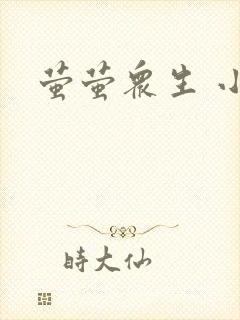 萤萤眾生 小
時大仙